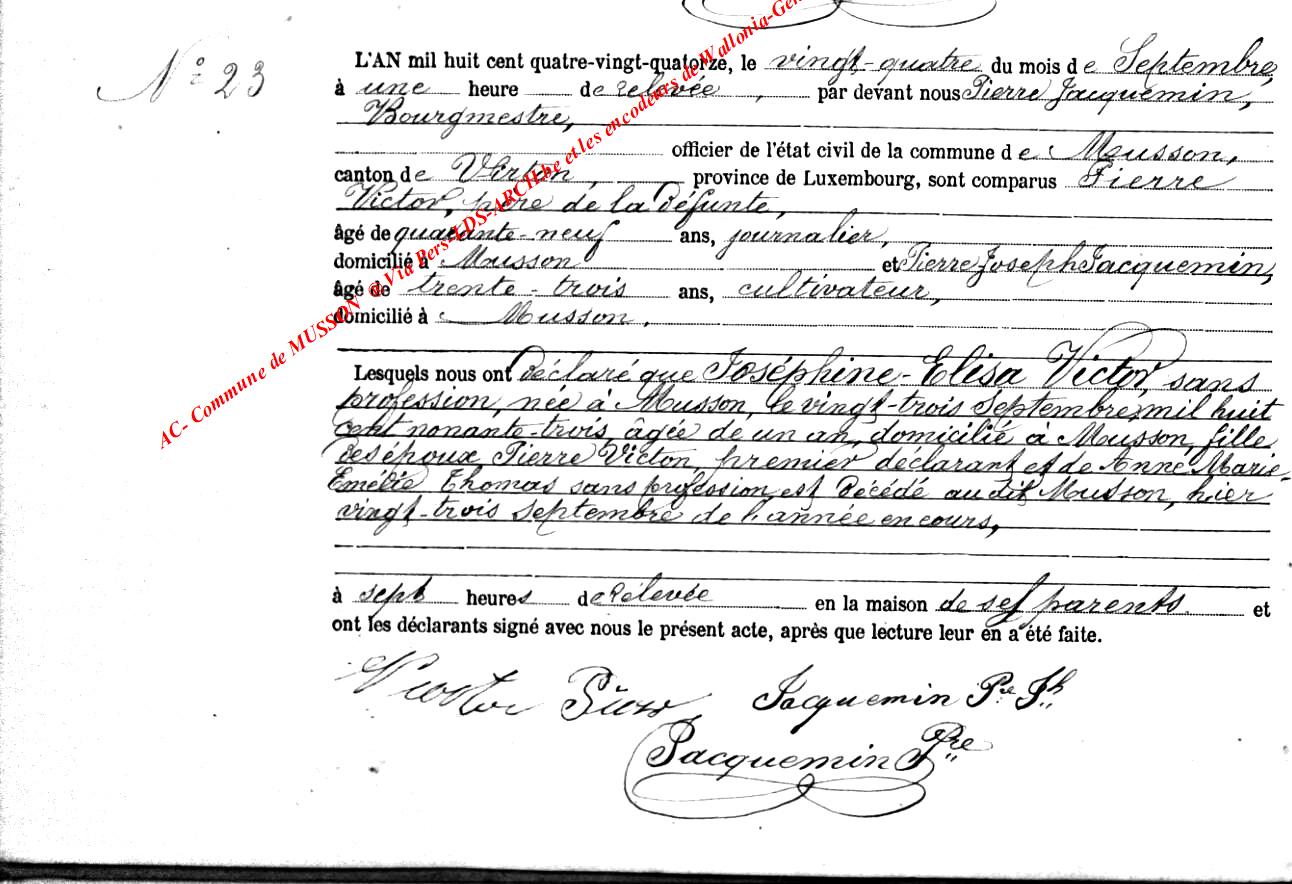 N° 23
L'AN mil huit cent quatre-vingt-quatorze, le vingt-quatre du mois de Septembre,
à une heure de relevée, par devant nous Pierre Jacquemin,
Bourgmestre,
officier de l'état civil de la commune de Musson,
canton de Virton, province de Luxembourg, sont comparus Pierre
Victor, père de la défunte,
âgé de quarante-neuf ans, journalier,
domicilié à Musson et Pierre Joseph Jacquemin,
âgé de trente-trois ans, cultivateur,
domicilié à Musson,
Lesquels nous ont déclaré que Joséphine-Elisa Victor, sans
profession, née à Musson, le vingt-trois Septembre mil huit
cent nonante-trois, âgée de un an, domicilié à Musson, fille
des époux Pierre Victor, premier déclarant et de Anne Marie-
Emélie Thomas sans profession, est décédé audit Musson, hier
vingt-trois Septembre de l'année en cours,
à sept heures de relevée en la maison de ses parents et
ont les déclarants signé avec nous le présent acte, après que lecture leur en a été faite.
Victor Jacquemin Pre Jh
Jacquemin Pre
AC- Commune de MUSSON @ Via Pers-LDS-ARCH.be et les encodeurs de Wallonia-Gen